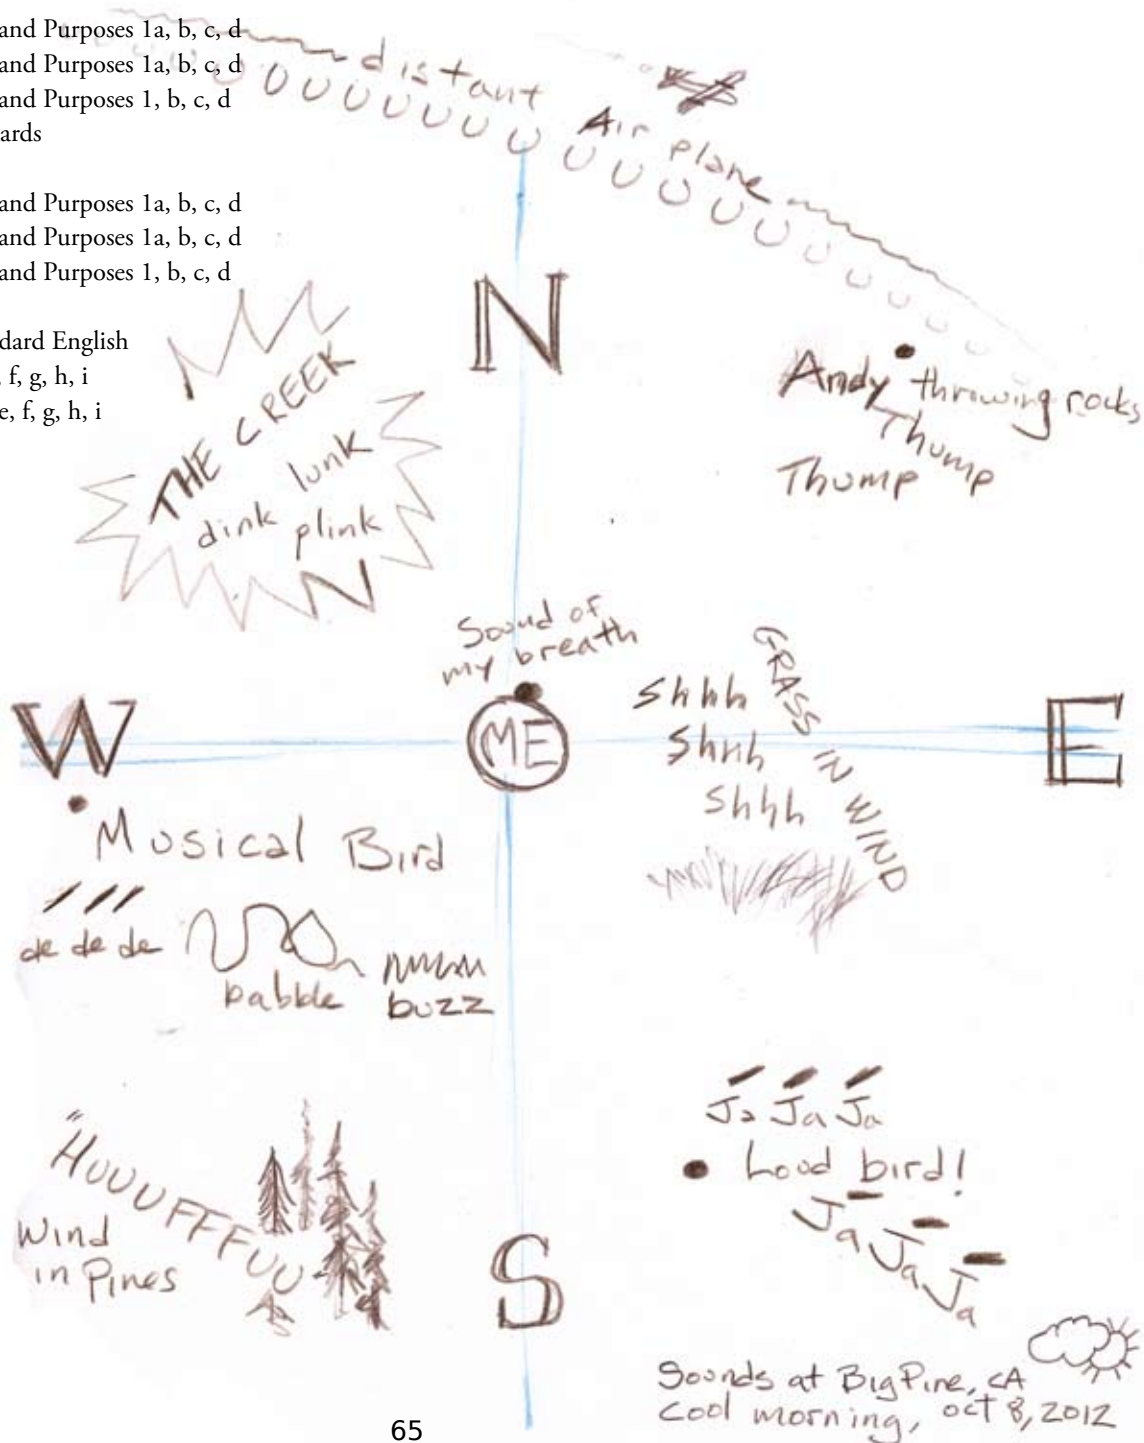 and Purposes 1a, b, c, d
and Purposes 1a, b, c, d
and Purposes 1, b, c, d
ards
and Purposes 1a, b, c, d
and Purposes 1a, b, c, d
and Purposes 1, b, c, d
dard English
, f, g, h, i
e, f, g, h, i
distant Air plane
N
THE CREEK
lunk
dink plink
Andy throwing rocks
Thump
Thump
Sound of
my breath
W
ME
E
Shhh
Shhh
Shhh
GRASS IN WIND
Musical Bird
de de de
babble
buzz
"HUUUFFFFUU
Wind
in Pines
Ja Ja Ja
Loud bird!
Ja Ja Ja
S
Sounds at Big Pine, CA
Cool morning, oct 8, 2012
65